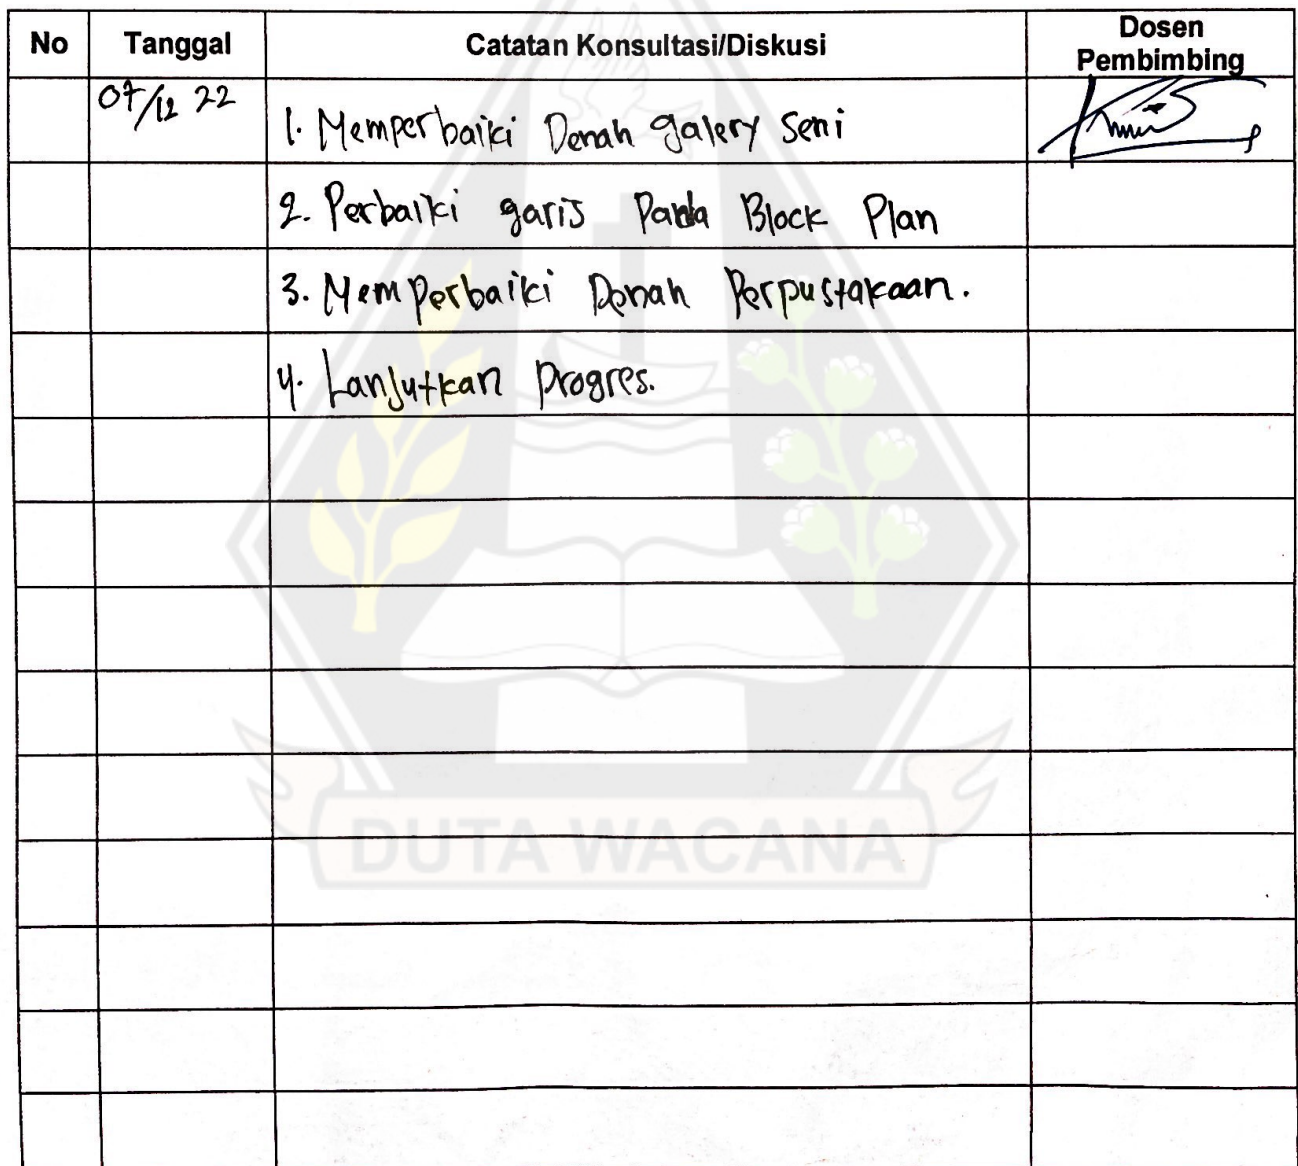 No Tanggal Catatan Konsultasi/Diskusi Dosen
Pembimbing
07/12 22
1. Memperbaiki Denah galery seni
2. Perbaiki garis Pada Block Plan
3. Memperbaiki Denah Perpustakaan.
4. Lanjutkan Progres.
DUTA WACANA